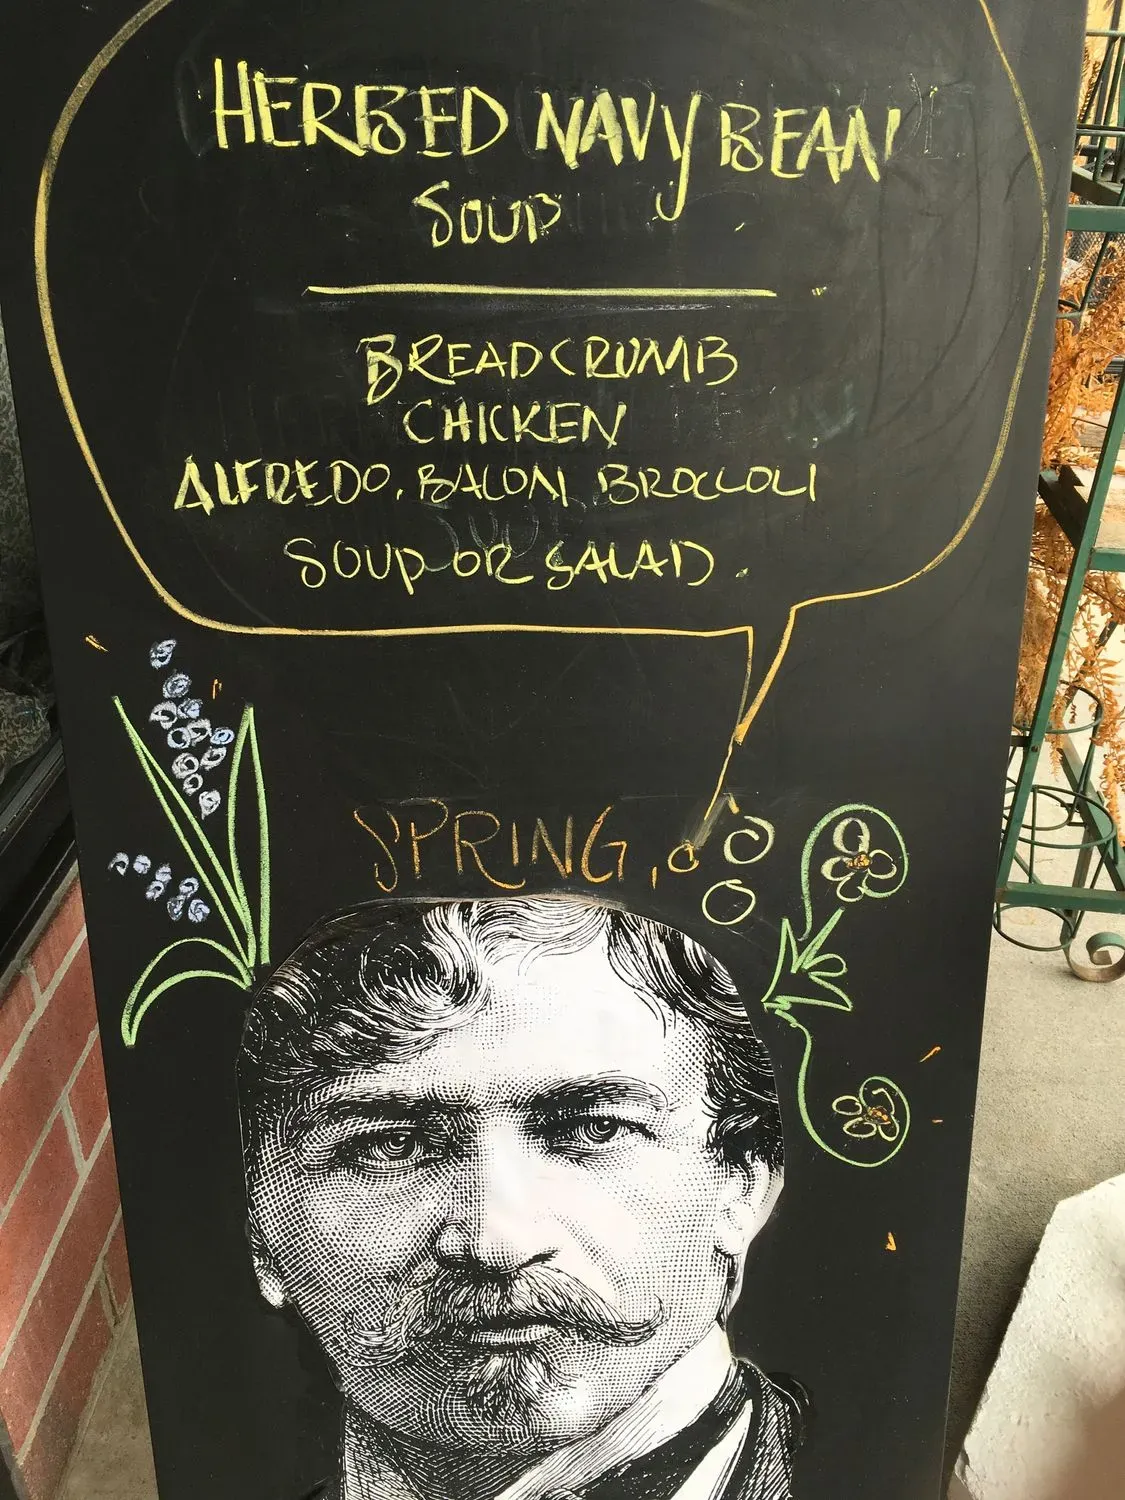 HERBED NAVY BEAN
SOUP
BREADCRUMB
CHICKEN
ALFREDO, BACON BROCCOLI
SOUP OR SALAD.
SPRING,